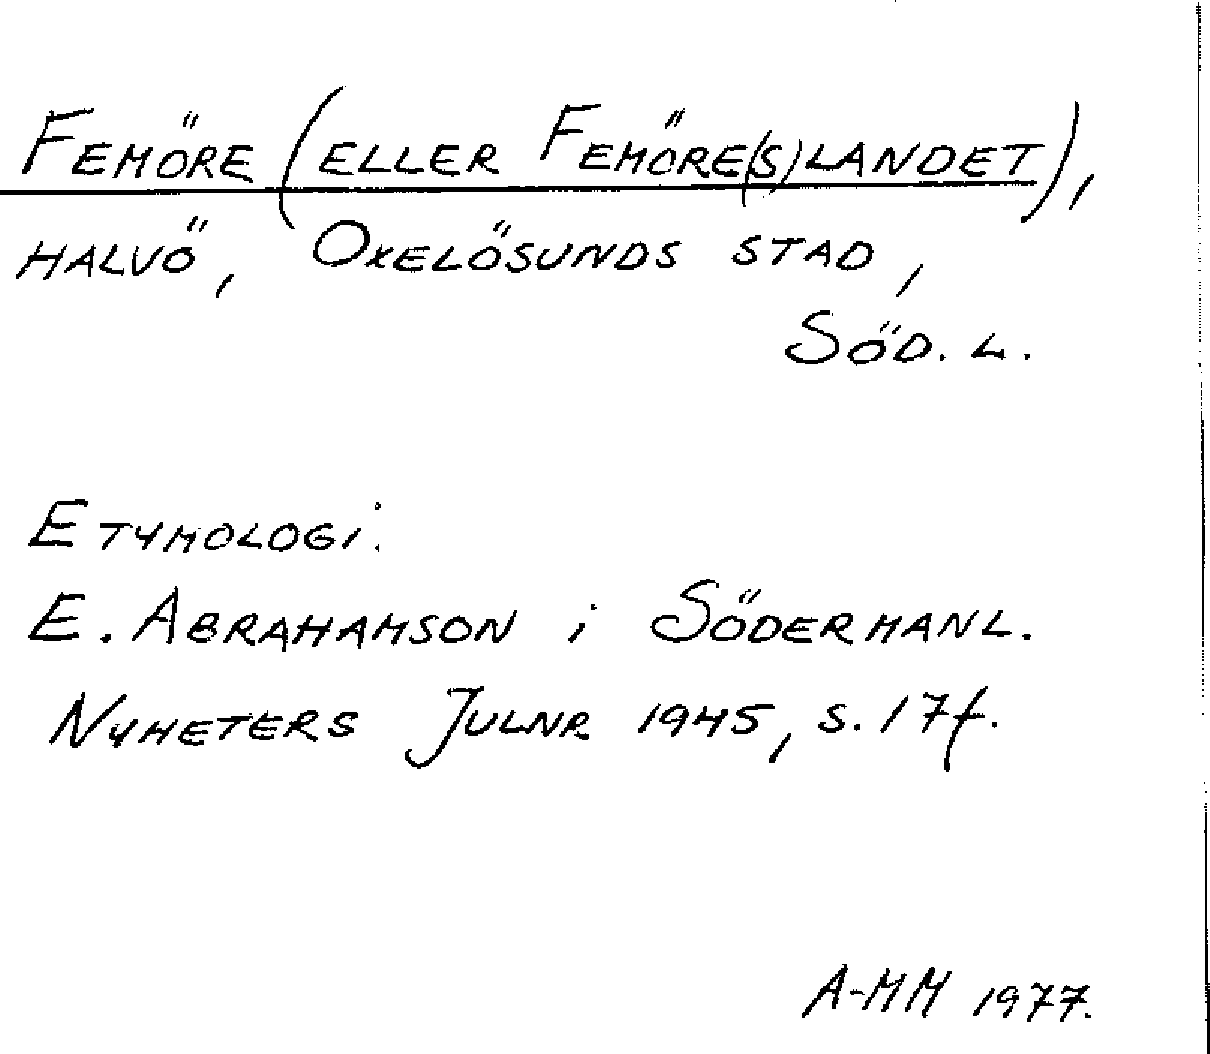 FEMÖRE (ELLER FEMÖRE(S)LANDET),
HALVÖ, OXELÖSUNDS STAD,
SÖD. L.
ETYMOLOGI:
E. ABRAHAMSON i SÖDERMANL.
NYHETERS JULNR 1945, S. 17f.
A-MM 1977.